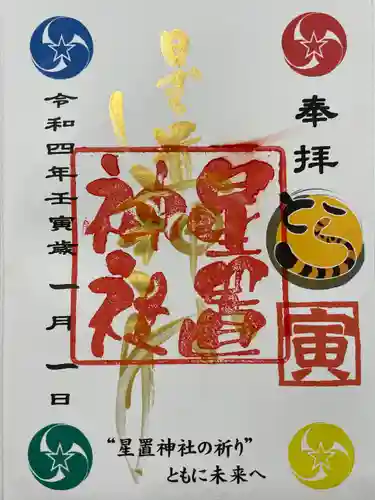 奉拝
とら
寅
星置神社
星置神社
令和四年壬寅歳 一月一日
“星置神社の祈り”
ともに未来へ